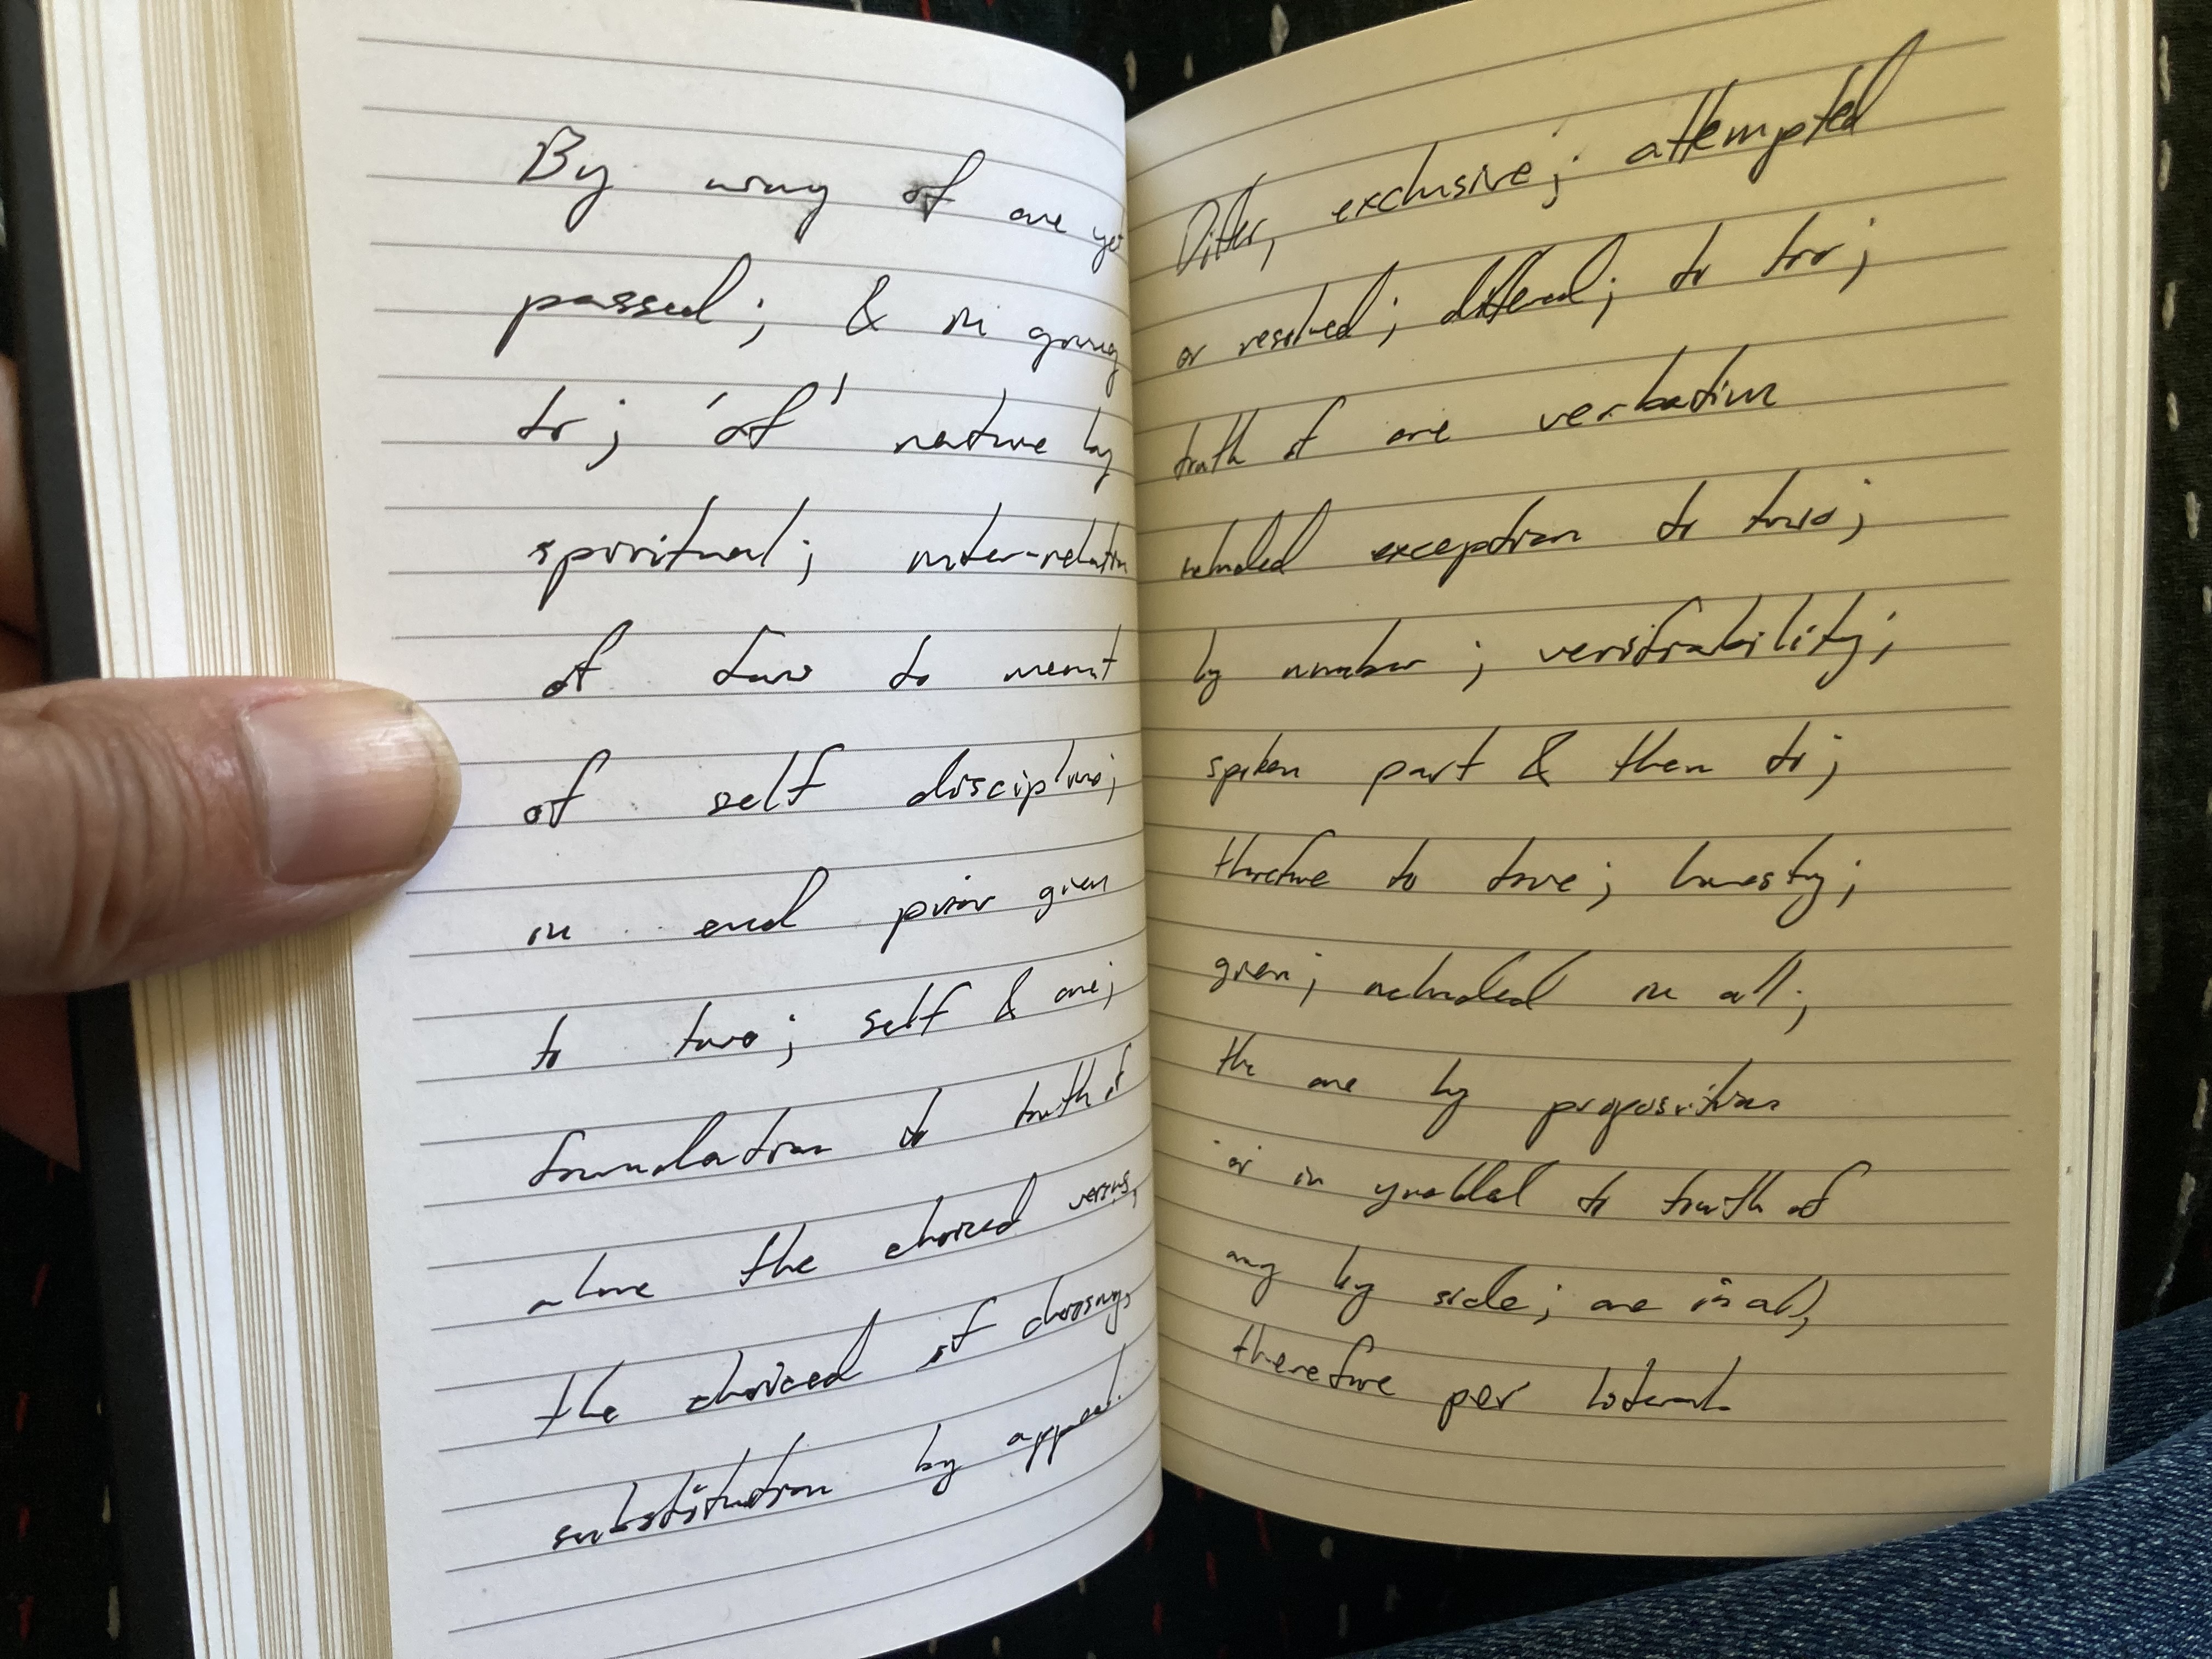 By way of one yet
passed; & in going
to; 'of' nature by
spiritual; inter-relation
of two to merit
of self discipline;
in end prior given
to two; self & one;
foundation to truth of
alone the choiced versus,
the choiced of choosing,
substitution by appeal.
Differ, exclusive; attempted
or resolved; differed; to too;
truth of one verbatim
included exception to two;
by number; verifiability;
spoken part & then to;
therefore to love; honesty;
given; included in all;
the one by proposition
or in to truth of
any by side; one in all,
therefore per